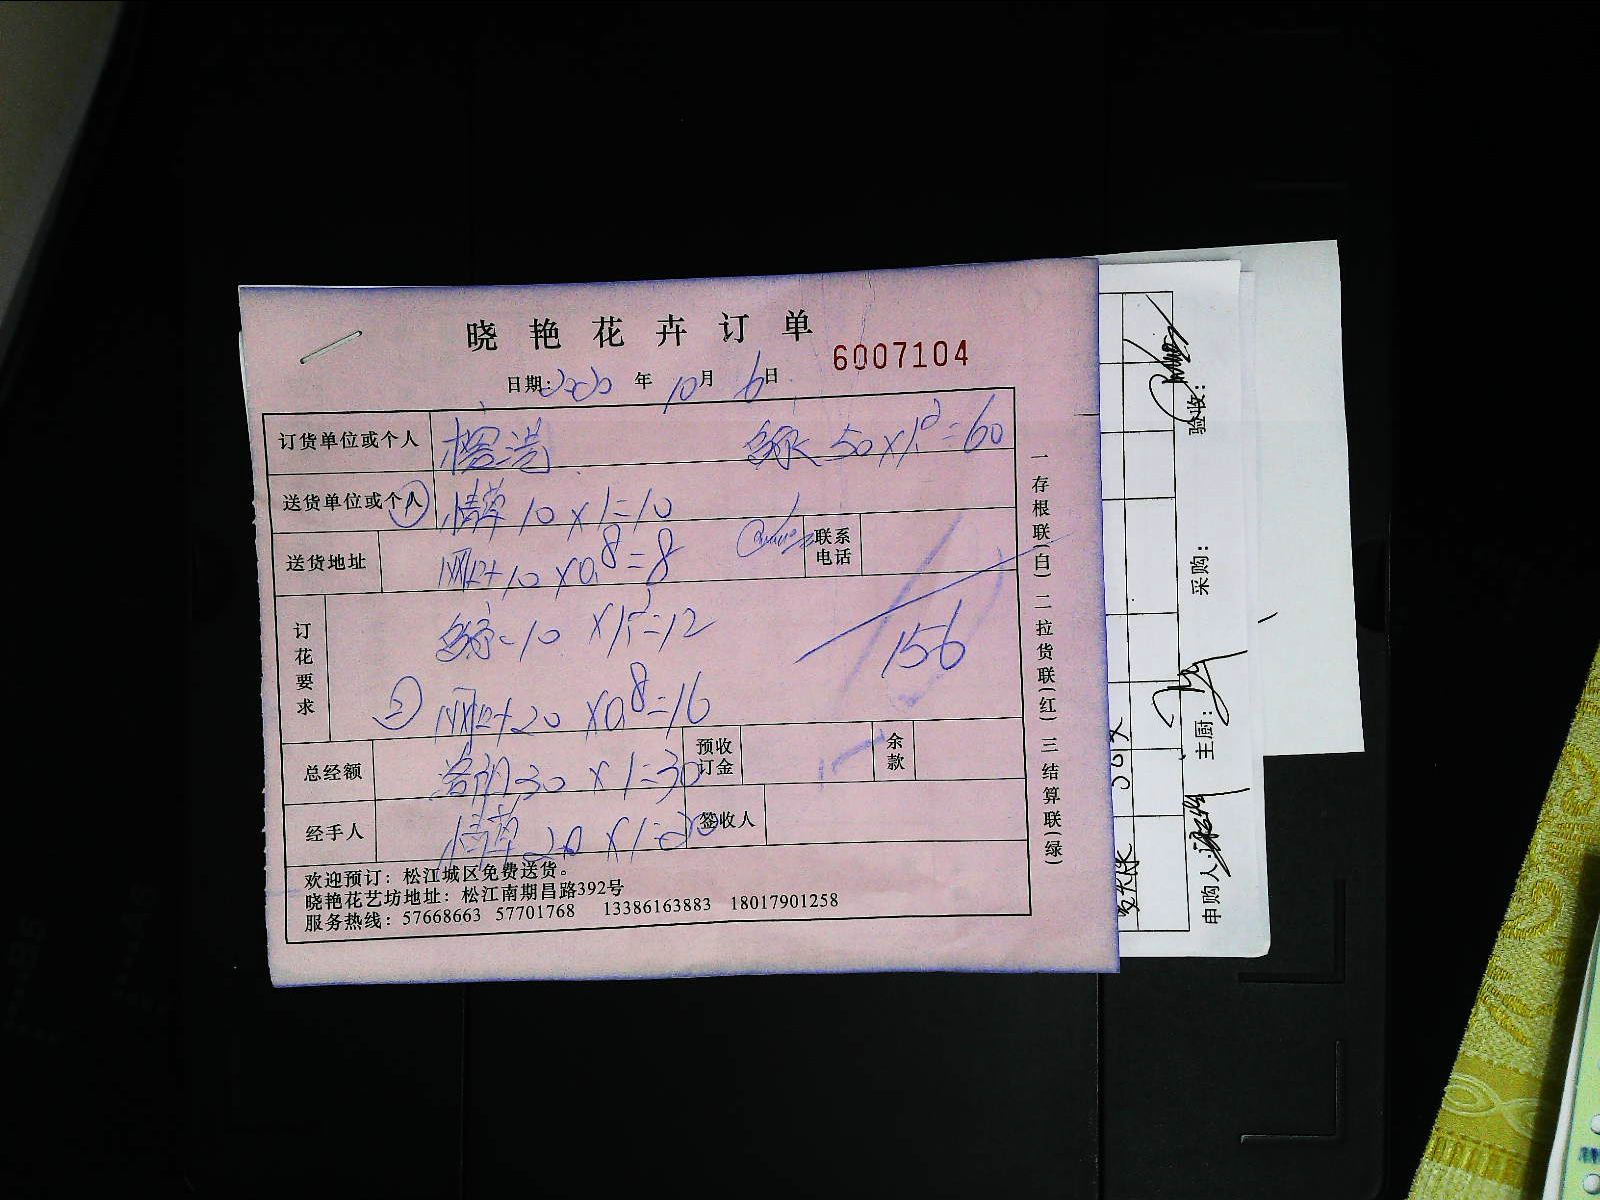 晓艳花卉订单
6007104
日期:2020年10月6日
订货单位或个人 50×1.2=60
送货单位或个人 ① 情草 10×1=10
送货地址 10×0.8=8 联系电话
订花要求 10×1.2=12
156
② 20×0.8=16
总经额 30×1=30 预收订金 余款
经手人 情草 20×1=20 签收人
欢迎预订:松江城区免费送货。
晓艳花艺坊地址:松江南期昌路392号
服务热线:57668663 57701768 13386163883 18017901258
一存根联(白)二拉货联(红)三结算联(绿)
验收:
采购:
主厨:
申购人: